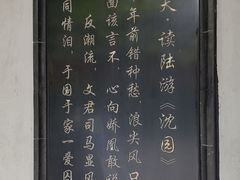 大·读陆游《沈园》
年前错种愁，浪尖风口
面该言不，心向娇凰敢
反潮流，文君司马显风
同情泪，于国于家一爱囚